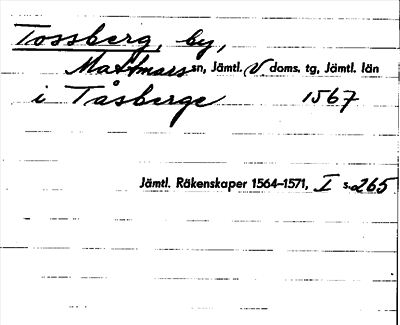 Tossberg, by,
Mattmars sn, Jämtl. V doms. tg, Jämtl. län
i Tåsberge 1567
Jämtl. Räkenskaper 1564–1571, I s. 265